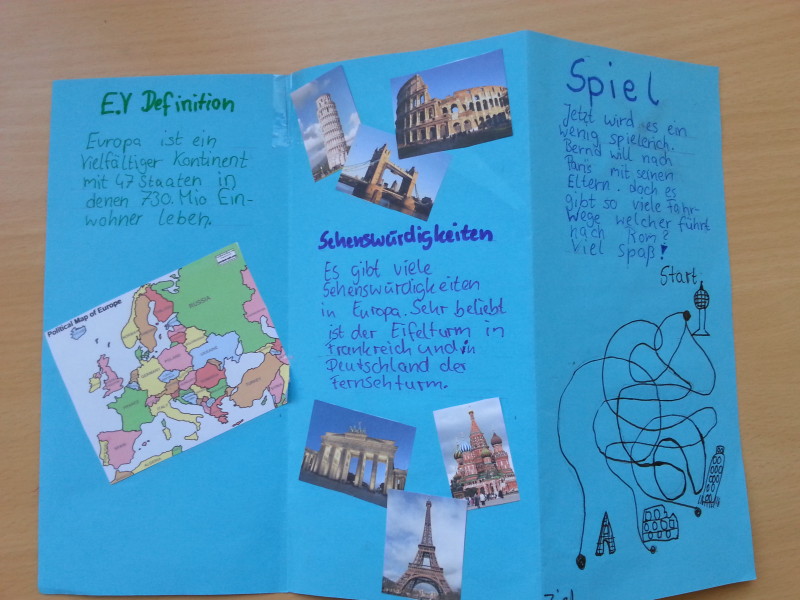 E.V Definition
Europa ist ein
vielfältiger Kontinent
mit 47 Staaten in
denen 730. Mio Ein-
wohner leben.
Political Map of Europe
RUSSIA
UKRAINE
TURKEY
FRANCE
SPAIN
ITALY
Sehenswürdigkeiten
Es gibt viele
Sehenswürdigkeiten
in Europa. Sehr beliebt
ist der Eifelturm in
Frankreich und in
Deutschland der
Fernsehturm.
Spiel
Jetzt wird es ein
wenig spielerich.
Bernd will nach
Paris mit seinen
Eltern. doch es
gibt so viele Fahr-
Wege welcher führt
nach Rom?
Viel Spaß!
Start
Ziel